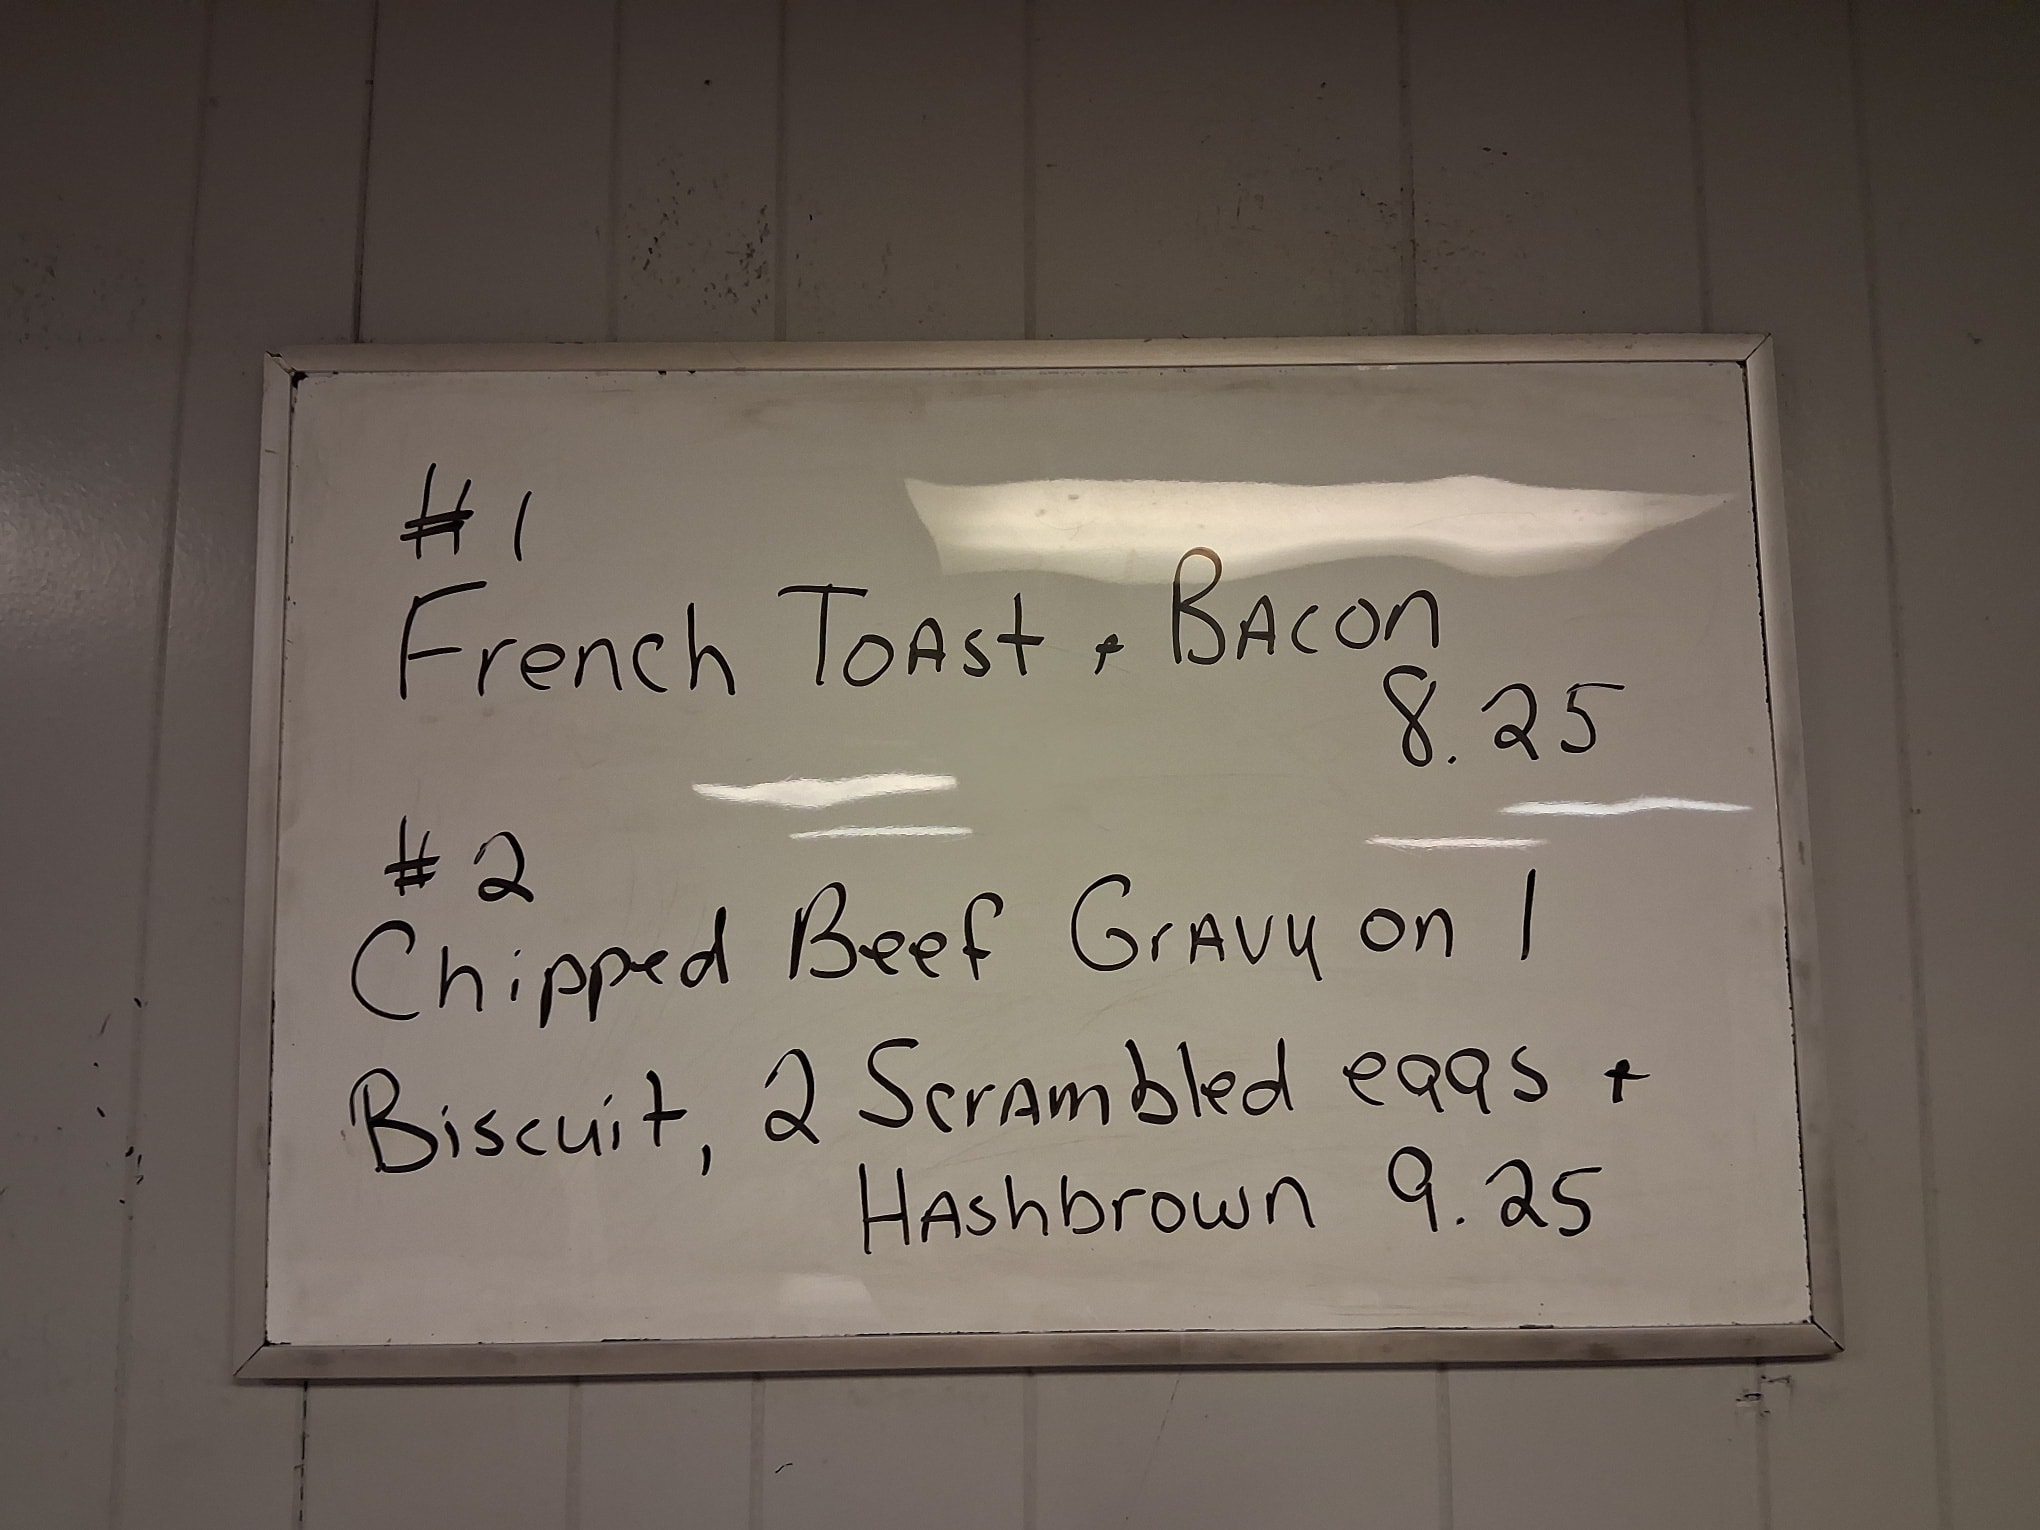 #1
French Toast + Bacon
8.25
#2
Chipped Beef Gravy on 1
Biscuit, 2 Scrambled eggs +
Hashbrown 9.25